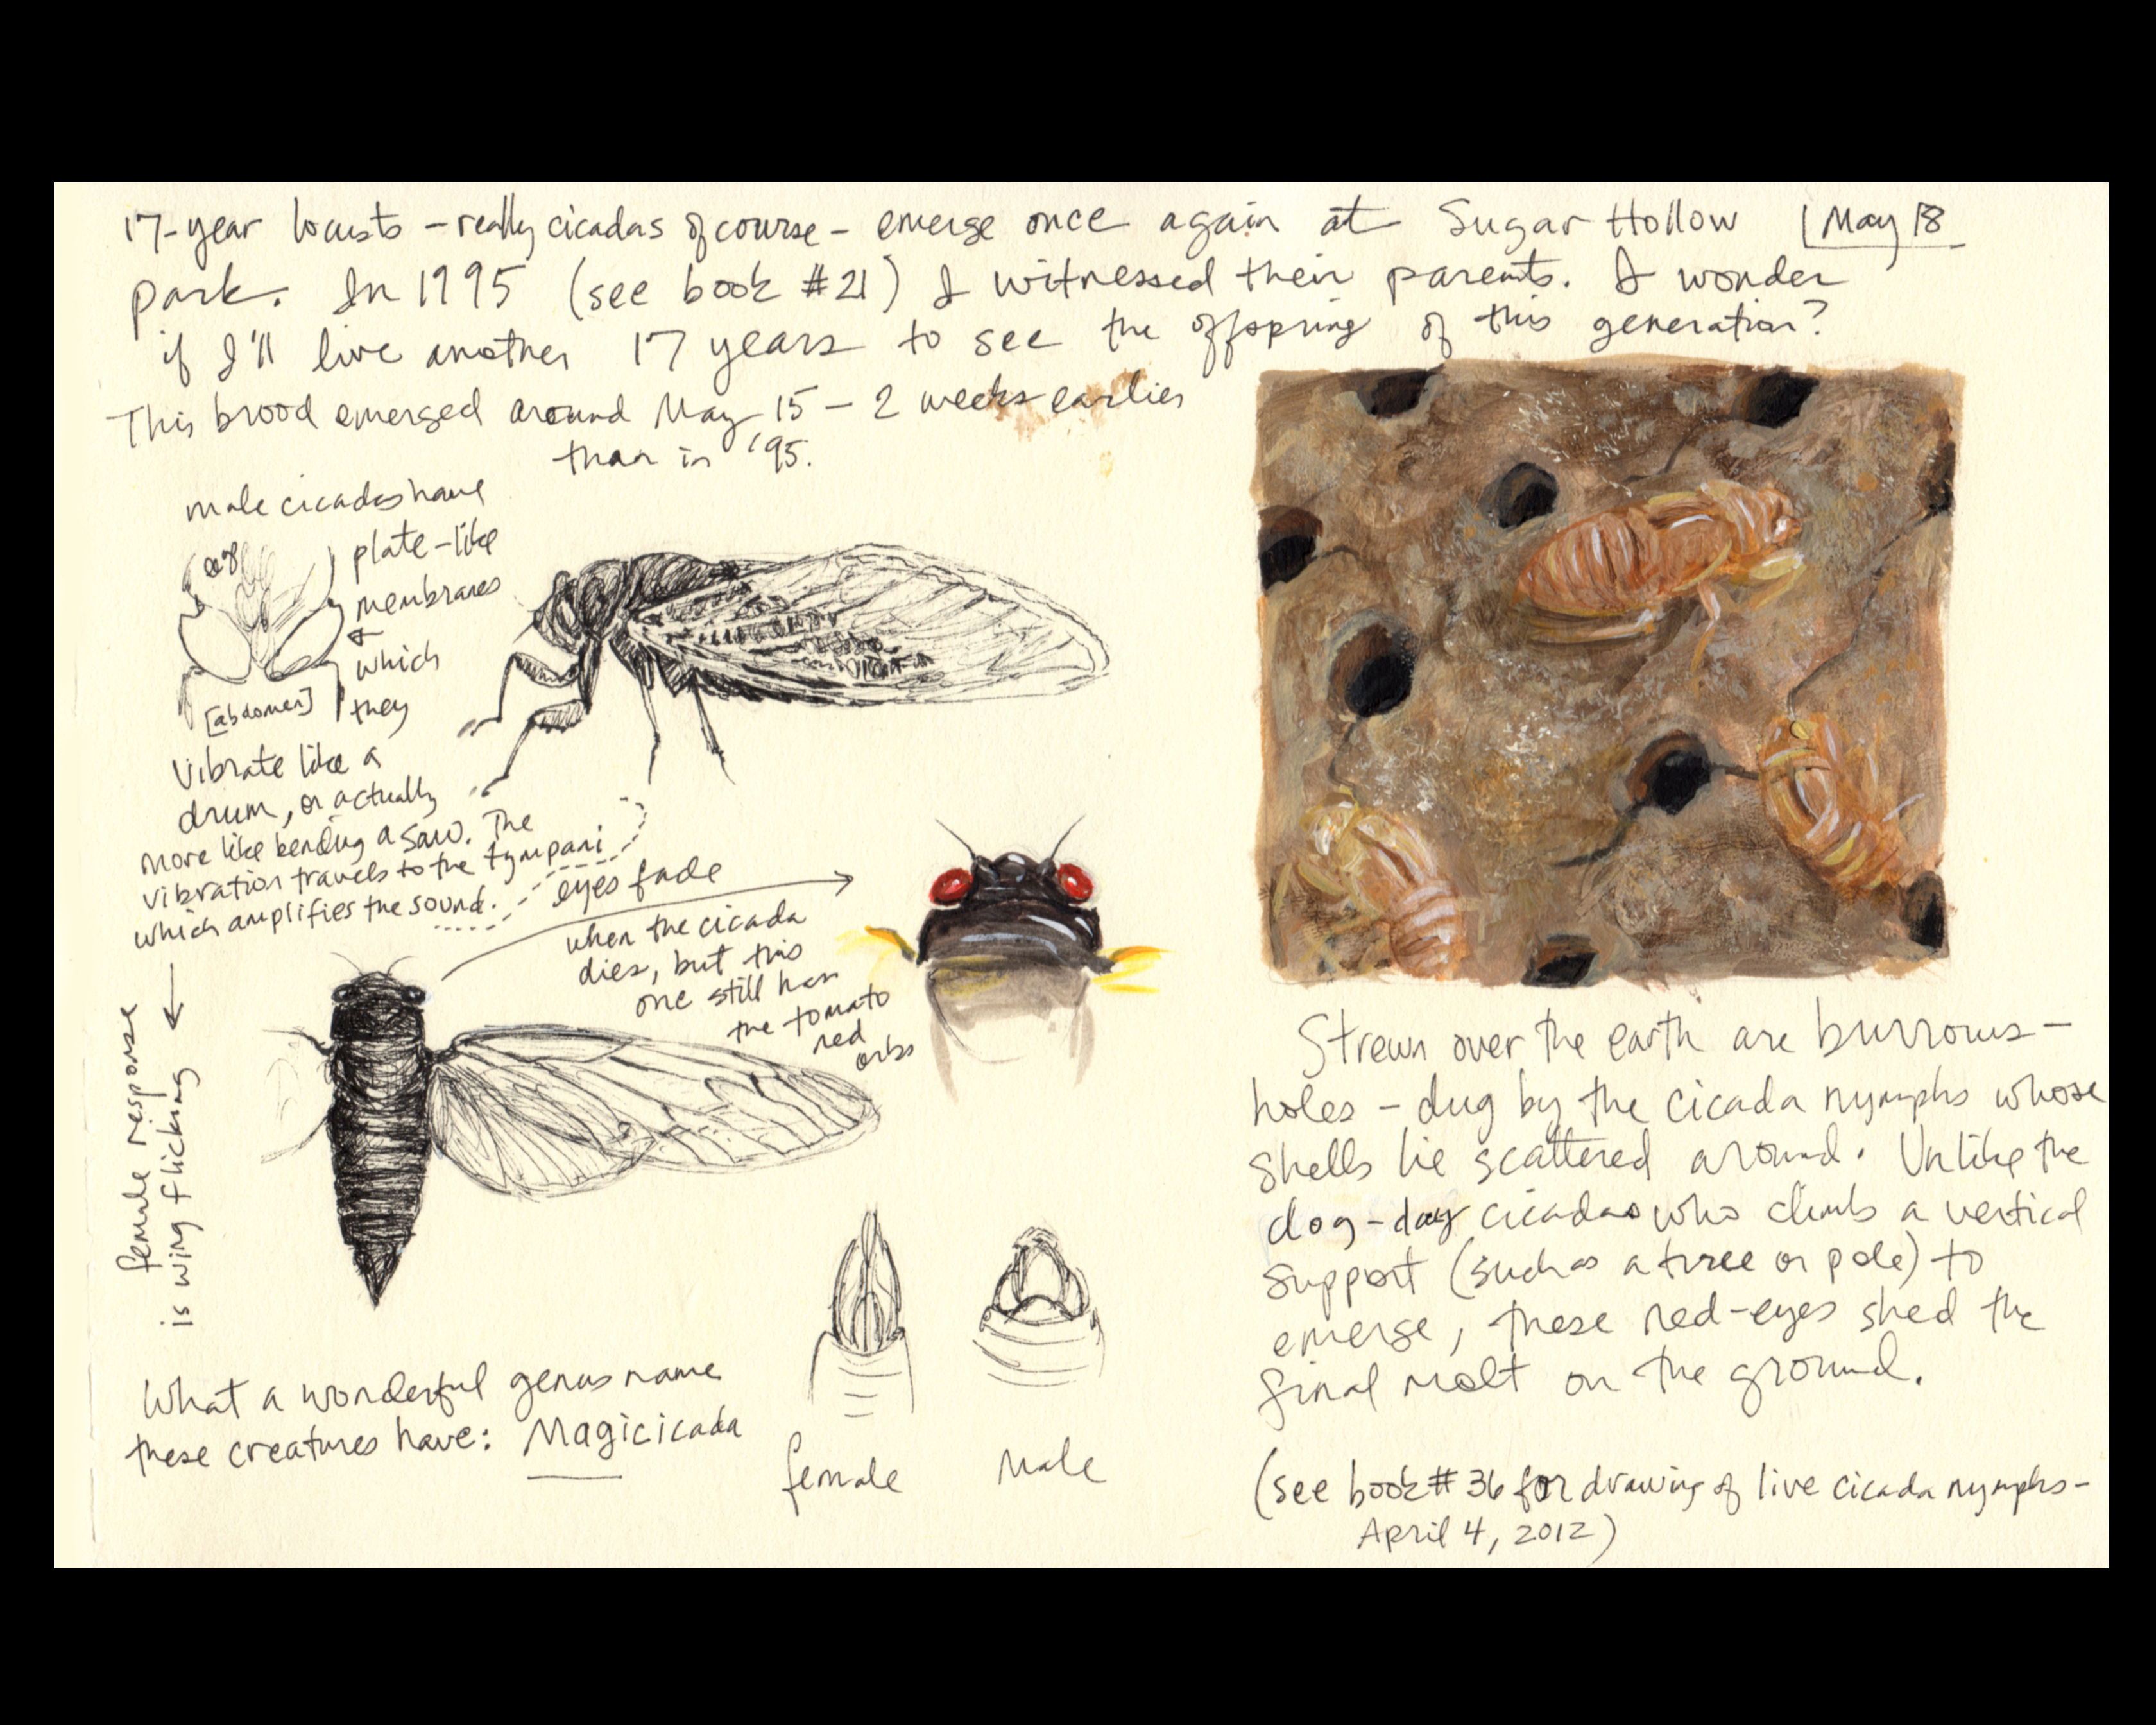 17-year locusts – really cicadas of course – emerge once again at Sugar Hollow
May 18
park. In 1995 (see book #21) I witnessed their parents. I wonder
if I'll live another 17 years to see the offspring of this generation?
This brood emerged around May 15 – 2 weeks earlier
than in '95.
male cicadas have
plate-like
membranes
which
they
[abdomen]
vibrate like a
drum, or actually
more like bending a saw. The
vibration travels to the tympani
which amplifies the sound.
female response
is wing flicking
eyes fade
when the cicada
dies, but this
one still has
the tomato
red
orbs
What a wonderful genus name
these creatures have: Magicicada
female
male
Strewn over the earth are burrows –
holes – dug by the cicada nymphs whose
shells lie scattered around. Unlike the
dog-day cicadas who climb a vertical
support (such as a tree or pole) to
emerge, these red-eyes shed the
final molt on the ground.
(see book #36 for drawing of live cicada nymphs –
April 4, 2012)